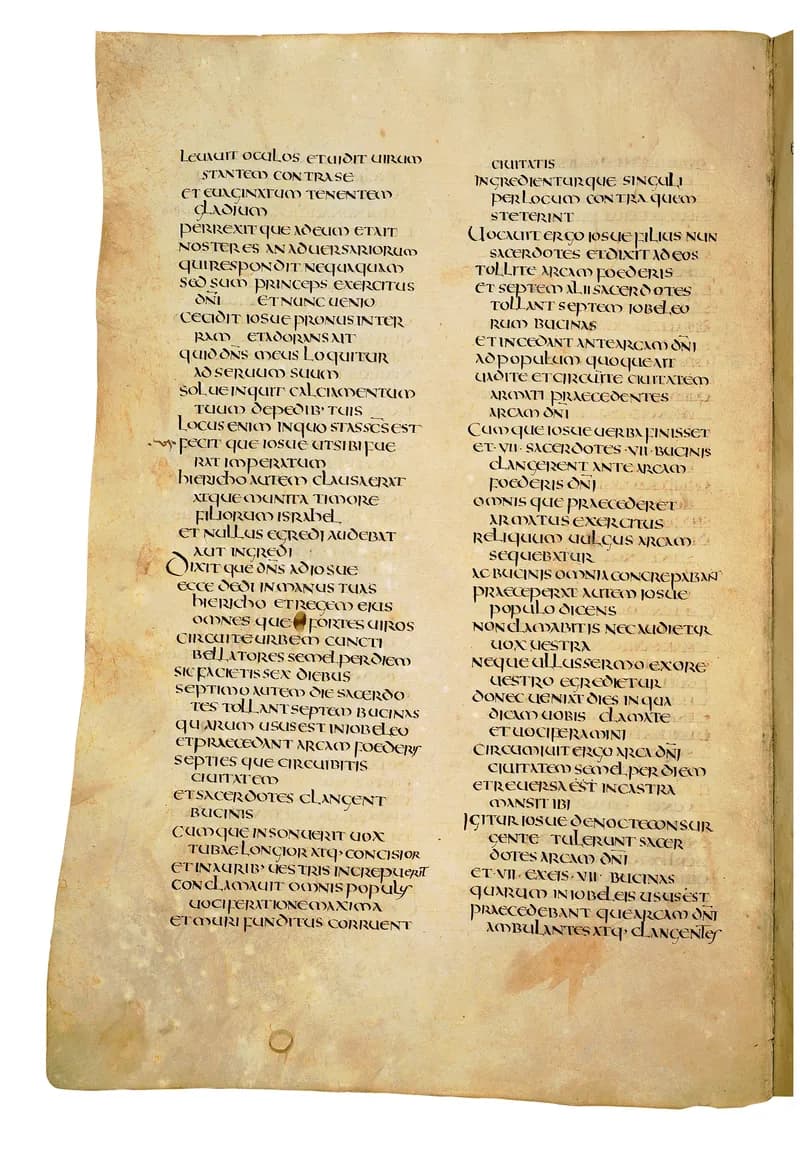 leuauit oculos et uidit uirum
stantem contra se
et euaginatum tenentem
gladium
perrexitque ad eum et ait
noster es an aduersariorum
qui respondit nequaquam
sed sum princeps exercitus
dn̄i et nunc uenio
cecidit iosue pronus in ter
ram et adorans ait
quid dn̄s meus loquitur
ad seruum suum
solue inquit calciamentum
tuum de pedib· tuis
locus enim in quo stas sc̄s est
fecit que iosue ut sibi fue
rat imperatum
hiericho autem clausa erat
atque munita timore
filiorum israhel
et nullus egredi audebat
aut ingredi
Dixit que dn̄s ad iosue
ecce dedi in manus tuas
hiericho et regem eius
omnes que fortes uiros
circuite urbem cuncti
bellatores semel per diem
sic facietis sex diebus
septimo autem die sacerdo
tes tollant septem bucinas
quarum usus est in iobeleo
et praecedant arcam foederis
septies que circuibitis
ciuitatem
et sacerdotes clangent
bucinis
cum que insonuerit uox
tubae longior atq· concisior
et in aurib· uestris increpuerit
conclamauit omnis populus
uociferatione maxima
et muri funditus corruent
ciuitatis
ingredienturque singuli
per locum contra quem
steterint
Uocauit ergo iosue filius nun
sacerdotes et dixit ad eos
tollite arcam foederis
et septem alii sacerdotes
tollant septem iobeleo
rum bucinas
et incedant ante arcam dn̄i
ad populum quoque ait
uadite et circuite ciuitatem
armati praecedentes
arcam dn̄i
Cum que iosue uerba finisset
et ·uii· sacerdotes ·uii· bucinis
clangerent ante arcam
foederis dn̄i
omnis que praecederet
armatus exercitus
reliquum uulgus arcam
sequebatur
ac bucinis omnia concrepabant
praeceperat autem iosue
populo dicens
non clamabitis nec audietur
uox uestra
neque ullus sermo ex ore
uestro egredietur
donec ueniat dies in qua
dicam uobis clamate
et uociferamini
circumiuit ergo arca dn̄i
ciuitatem semel per diem
et reuersa est in castra
mansit ibi
Igitur iosue de nocte consur
gente tulerunt sacer
dotes arcam dn̄i
et ·uii· ex eis ·uii· bucinas
quarum in iobeleis usus est
praecedebant que arcam dn̄i
ambulantes atq· clangentes